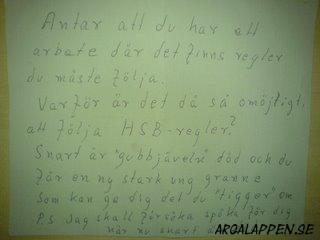 Antar att du har ett
arbete där det finns regler
du måste följa.
Varför är det då så omöjligt,
att följa HSB-regler?
Snart är "gubbjäveln" död och du
får en ny stark ung granne
som kan ge dig det du "tigger" om
P.S Jag skall försöka spöka för dig
när nu snart
ARGALAPPEN.SE